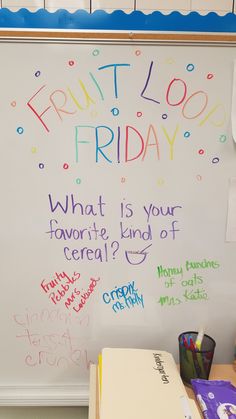 FRUIT LOOP
FRIDAY
What is your
favorite kind of
cereal?
Fruity
Pebbles
Mrs.
Crispix
Ms. Molly
Honey Bunches
of oats
Mrs. Katie
cinnamon
toast
crunch
Kindergarten